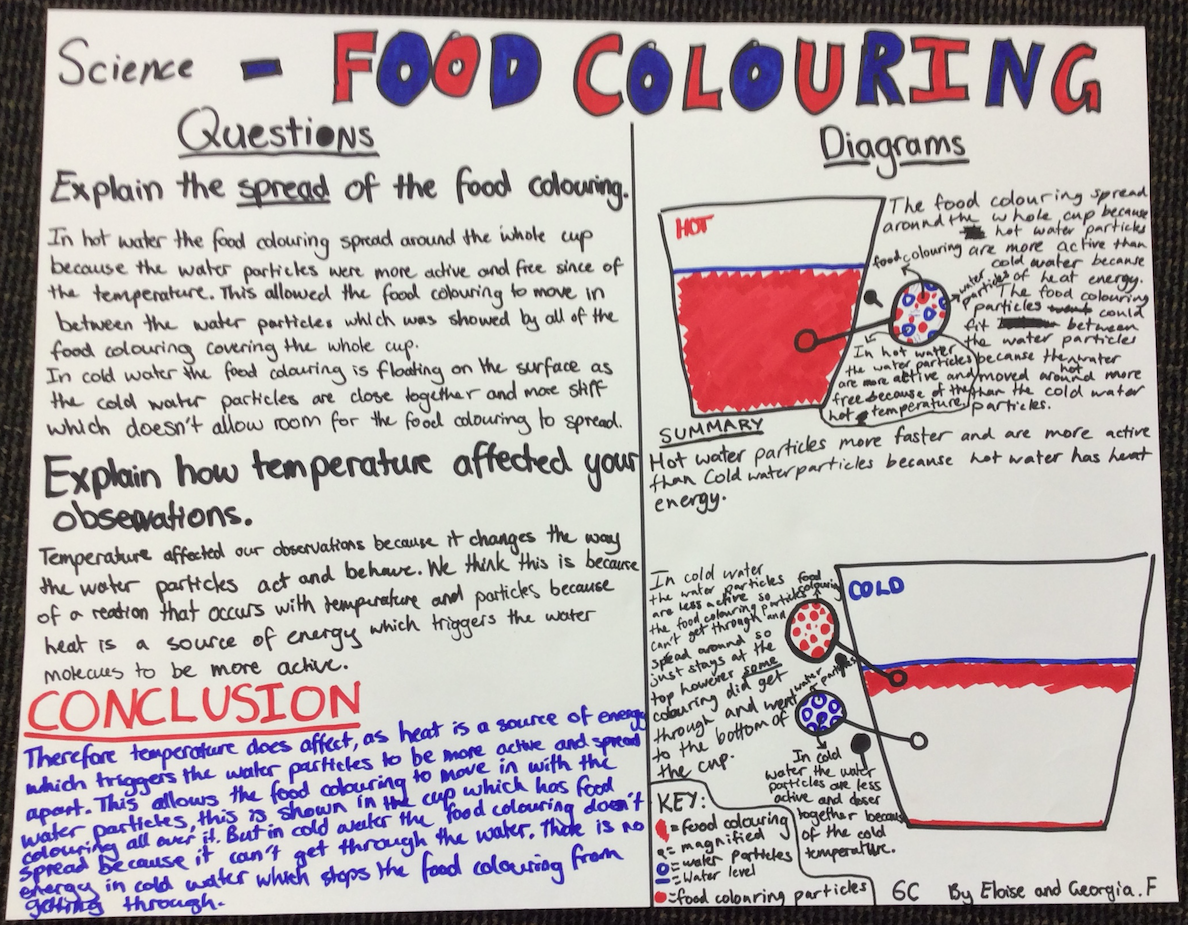 Science - FOOD COLOURING
Questions
Explain the spread of the food colouring.
In hot water the food colouring spread around the whole cup
because the water particles were more active and free since of
the temperature. This allowed the food colouring to move in
between the water particles which was showed by all of the
food colouring covering the whole cup.
In cold water the food colouring is floating on the surface as
the cold water particles are close together and more stiff
which doesn't allow room for the food colouring to spread.
Explain how temperature affected your
observations.
Temperature affected our observations because it changes the way
the water particles act and behave. We think this is because
of a reation that occurs with temperature and particles because
heat is a source of energy which triggers the water
molecules to be more active.
CONCLUSION
Therefore temperature does affect, as heat is a source of energy
which triggers the water particles to be more active and spread
apart. This allows the food colouring to move in with the
water particles, this is shown in the cup which has food
colouring all over it. But in cold water the food colouring doesn't
spread because it can't get through the water. There is no
energy in cold water which stops the food colouring from
getting through.
Diagrams
HOT
The food colouring spread
around the whole cup because
hot water particles
are more active than
cold water because
of heat energy.
The food colouring
particles could
fit between
the water particles
because the hot water
moved around more
than the cold water
particles.
food colouring
water particles
In hot water
the water particles
are more active and
free because of the
hot temperature
SUMMARY
Hot water particles more faster and are more active
than Cold water particles because hot water has heat
energy.
In cold water
the water particles
are less active so
the food colouring particles
can't get through and
spread around so
just stays at the
top however some
colouring did get
through and went
to the bottom of
the cup.
food colouring
water particles
COLD
In cold
water the water
particles are less
active and closer
together because
of the cold
temperature.
KEY:
= food colouring
= magnified
= water particles
= Water level
= food colouring particles
6C By Eloise and Georgia.F